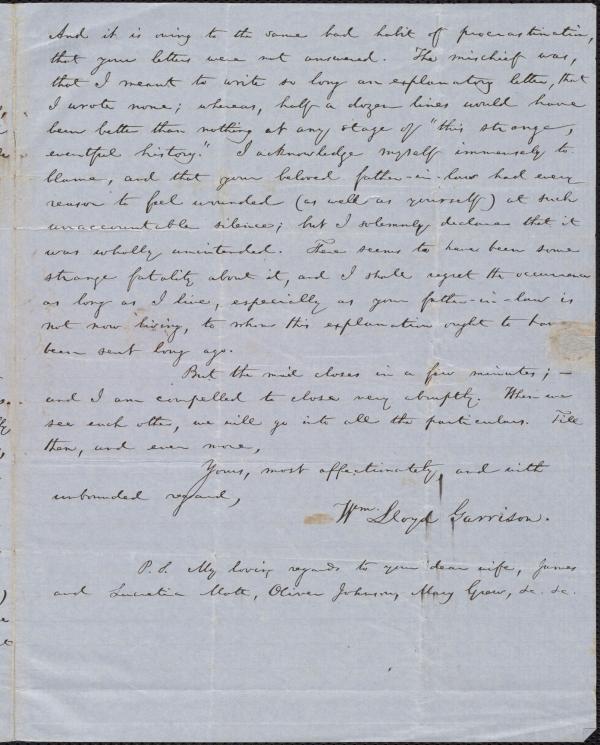 And it is owing to the same bad habit of procrastination,
that your letters were not answered. The mischief was,
that I meant to write so long an explanatory letter, that
I wrote none; whereas, half a dozen lines would have
been better than nothing at any stage of "this strange,
eventful history." I acknowledge myself immensely to
blame, and that your beloved father-in-law had every
reason to feel wounded (as well as yourself) at such
unaccountable silence; but I solemnly declare that it
was wholly unintended. There seems to have been some
strange fatality about it, and I shall regret the occurrence
as long as I live, especially as your father-in-law is
not now living, to whom this explanation ought to have
been sent long ago.
But the mail closes in a few minutes; —
and I am compelled to close very abruptly. When we
see each other, we will go into all the particulars. Till
then, and ever more,
Yours, most affectionately, and with
unbounded regard,
Wm. Lloyd Garrison.
P. S. My loving regards to your dear wife, James
and Lucretia Mott, Oliver Johnson, Mary Grew, &c. &c.